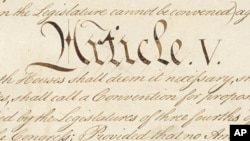 n the Legislature cannot be convened) ag
Article. V.
th Houses shall deem it necessary, s
s, shall call a Convention for propos
d by the Legislatures of three fourths of
he Congress; Provided that no Am
AP